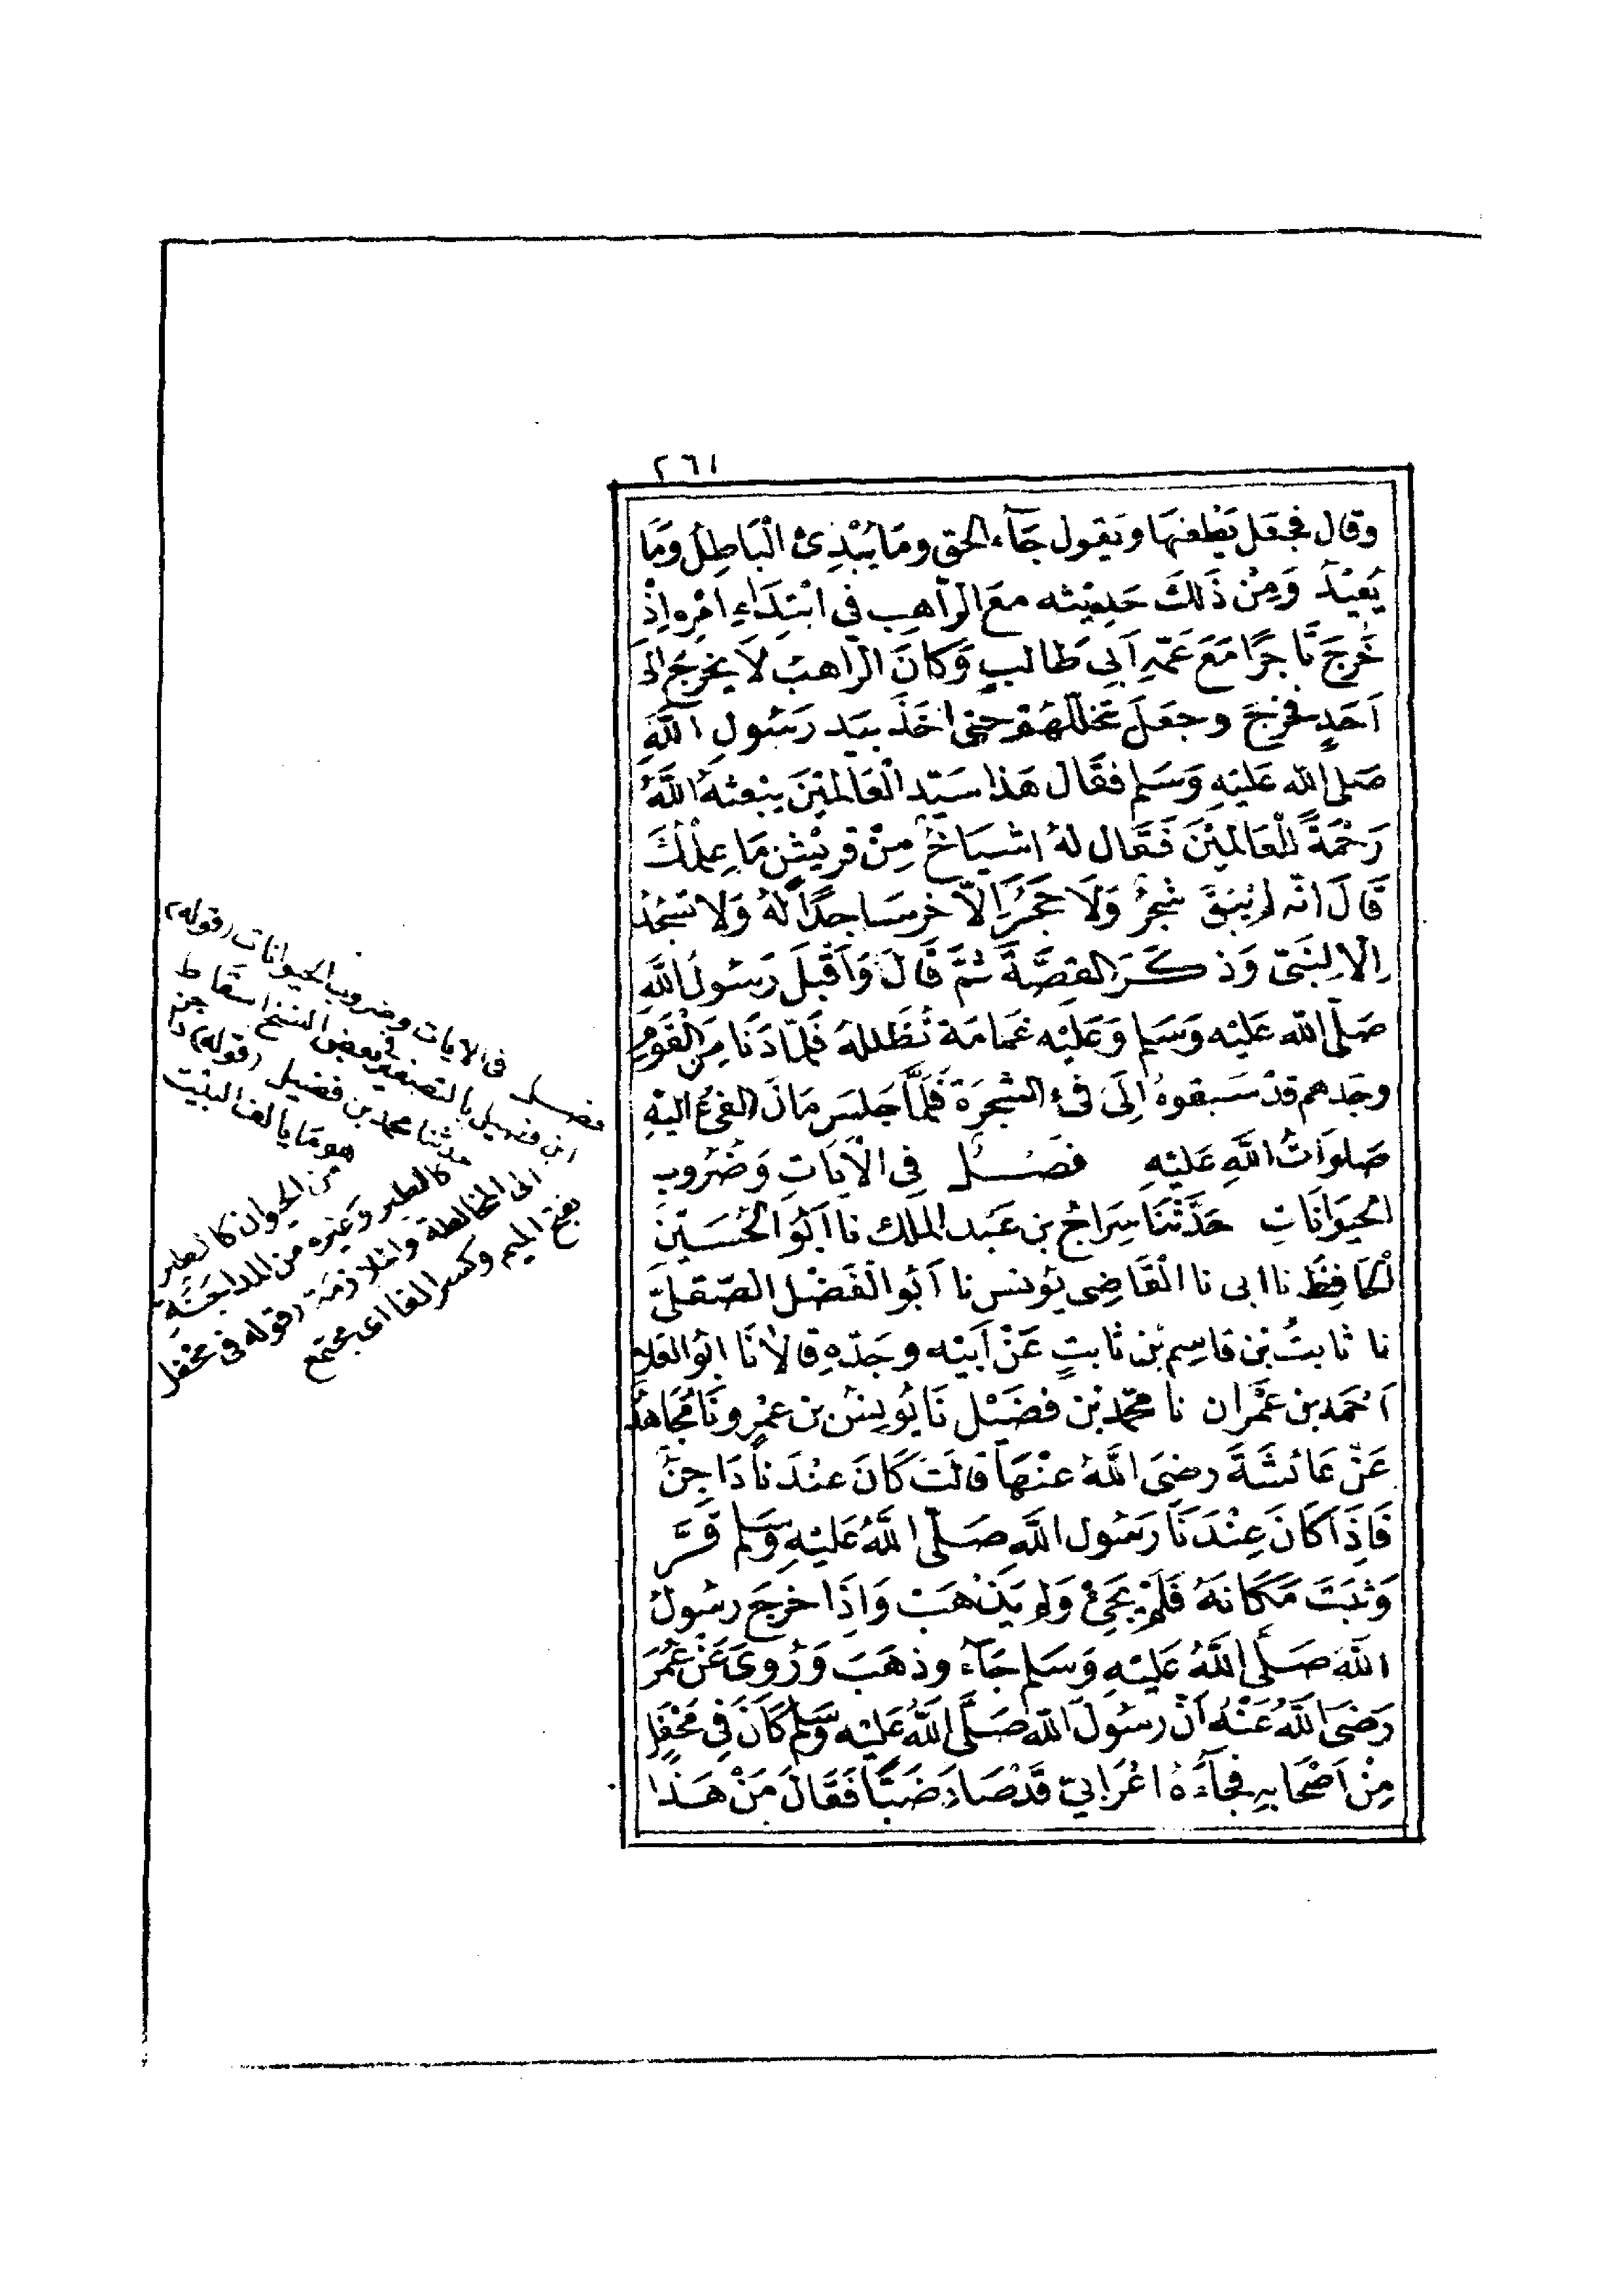 ٢٦١
وقال فجعل يطعنها ويقول جَآء الحق ومَا يُبْدِئ الْبَاطِلُ وَمَا
يُعِيْدُ وَمِنْ ذَلِكَ حَدِيْثه معَ الرّاهِب فى ابْتِدَاءِ امْرِه اِذْ
خَرَجَ تَاجِرًا مَعَ عَمّهِ اَبِى طَالبٍ وَكانَ الرّاهبُ لاَ يخرُجُ الىَ
اَحَدٍ فخرجَ وجعَلَ يتخللهُمْ حتى اخَذَ بيَد رَسُولِ اللَّهِ
صَلى الله عَليْهِ وَسَلم فقَال هَذا سَيّد الْعَالمِيْنَ يبْعثهُ اللَّهُ
رَحْمَةً لِلعَالمِيْنَ فَقَال لهُ اشْيَاخٌ مِنْ قريْشٍ مَا عِلْمُكَ
قَالَ انّه لمْ يَبْقَ شَجَرٌ وَلاَ حَجَرٌ اِلاّ خرسَاجدًا لهُ وَلا تسْجُدُ
اِلا لِنَبىّ وَذكَرَ القِصَّةَ ثمَّ قَالَ وَاَقْبَلَ رَسُولُ اللَّهِ
صَلّى الله عَليْه وَسَلم وَعَليْه غمَامَة تُظَللهُ فَلمّا دَنَا مِنَ الْقَوْمِ
وجَدهم قدْ سَبقوهُ اِلَى فىْءِ الشَّجَرَة فَلَمَّا جَلسَ مَالَ الفىْءُ اليْهِ
صَلوَاتُ اللَّهِ عَليْهِ فصْل فِى الْاَيَاتِ وَضُرُوبِ
الحيَوَانَاتِ حَدَّثنَا سِرَاجُ بن عَبْد الملك نا اَبُو الْحُسَيْنِ
الْحَافِظُ نا ابى نا الْقَاضِى يُونس نا اَبُو الْفَضْل الصّقلىّ
نا ثابتُ بْن قاسِم بْن ثابتٍ عَنْ اَبيْه وجَدّهِ قالاَ نَا ابُو العَلاء
اَحْمَد بن عمْرَان نا محمّد بْن فضَيْل نَا يُونسُ بن عمْرو نَا مُجَاهدٌ
عَنْ عَائشَةَ رضىَ اللَّهُ عنْهَا قالتْ كَانَ عنْدَنا دَاجِنٌ
فَاِذَا كَانَ عِنْدَنَا رَسُول اللَّهِ صَلّى اللَّهُ عَليْهِ وَسَلم قَرَّ
وَثبَتَ مَكَانهُ فَلَمْ يَجِئْ وَلمْ يَذْهَبْ وَاِذَا خرجَ رسُولُ
اللَّهِ صَلَّى اللَّهُ عَليْهِ وَسَلم جَآءَ وذهَبَ وَرُوِىَ عَنْ عُمَرَ
رَضىَ اللَّهُ عَنْهُ اَنّ رسُولَ اللّهِ صَلَّى اللَّهُ عَليْه وَسَلم كَانَ فِى مَحْفِلٍ
مِنْ اَصْحَابِهِ فجَآءَهُ اعْرَابِىّ قَدْ صَادَ ضَبًّا فَقَالَ مَنْ هَذا
فصل فى الايات وضروب الحيوانات (قوله)
ابن فضيل بالتصغير فى بعض النسخ اسقاط
حدثنا محمد بن فضيل (قوله) داجن
هو مَا يالف البيْت
من الحيوان كالطير
كالطير وغيره من المداجنَةِ
الى المخالطة والملازمة (قوله فى محْفل
بفتح الميم وكسر الفا اى مجتمع